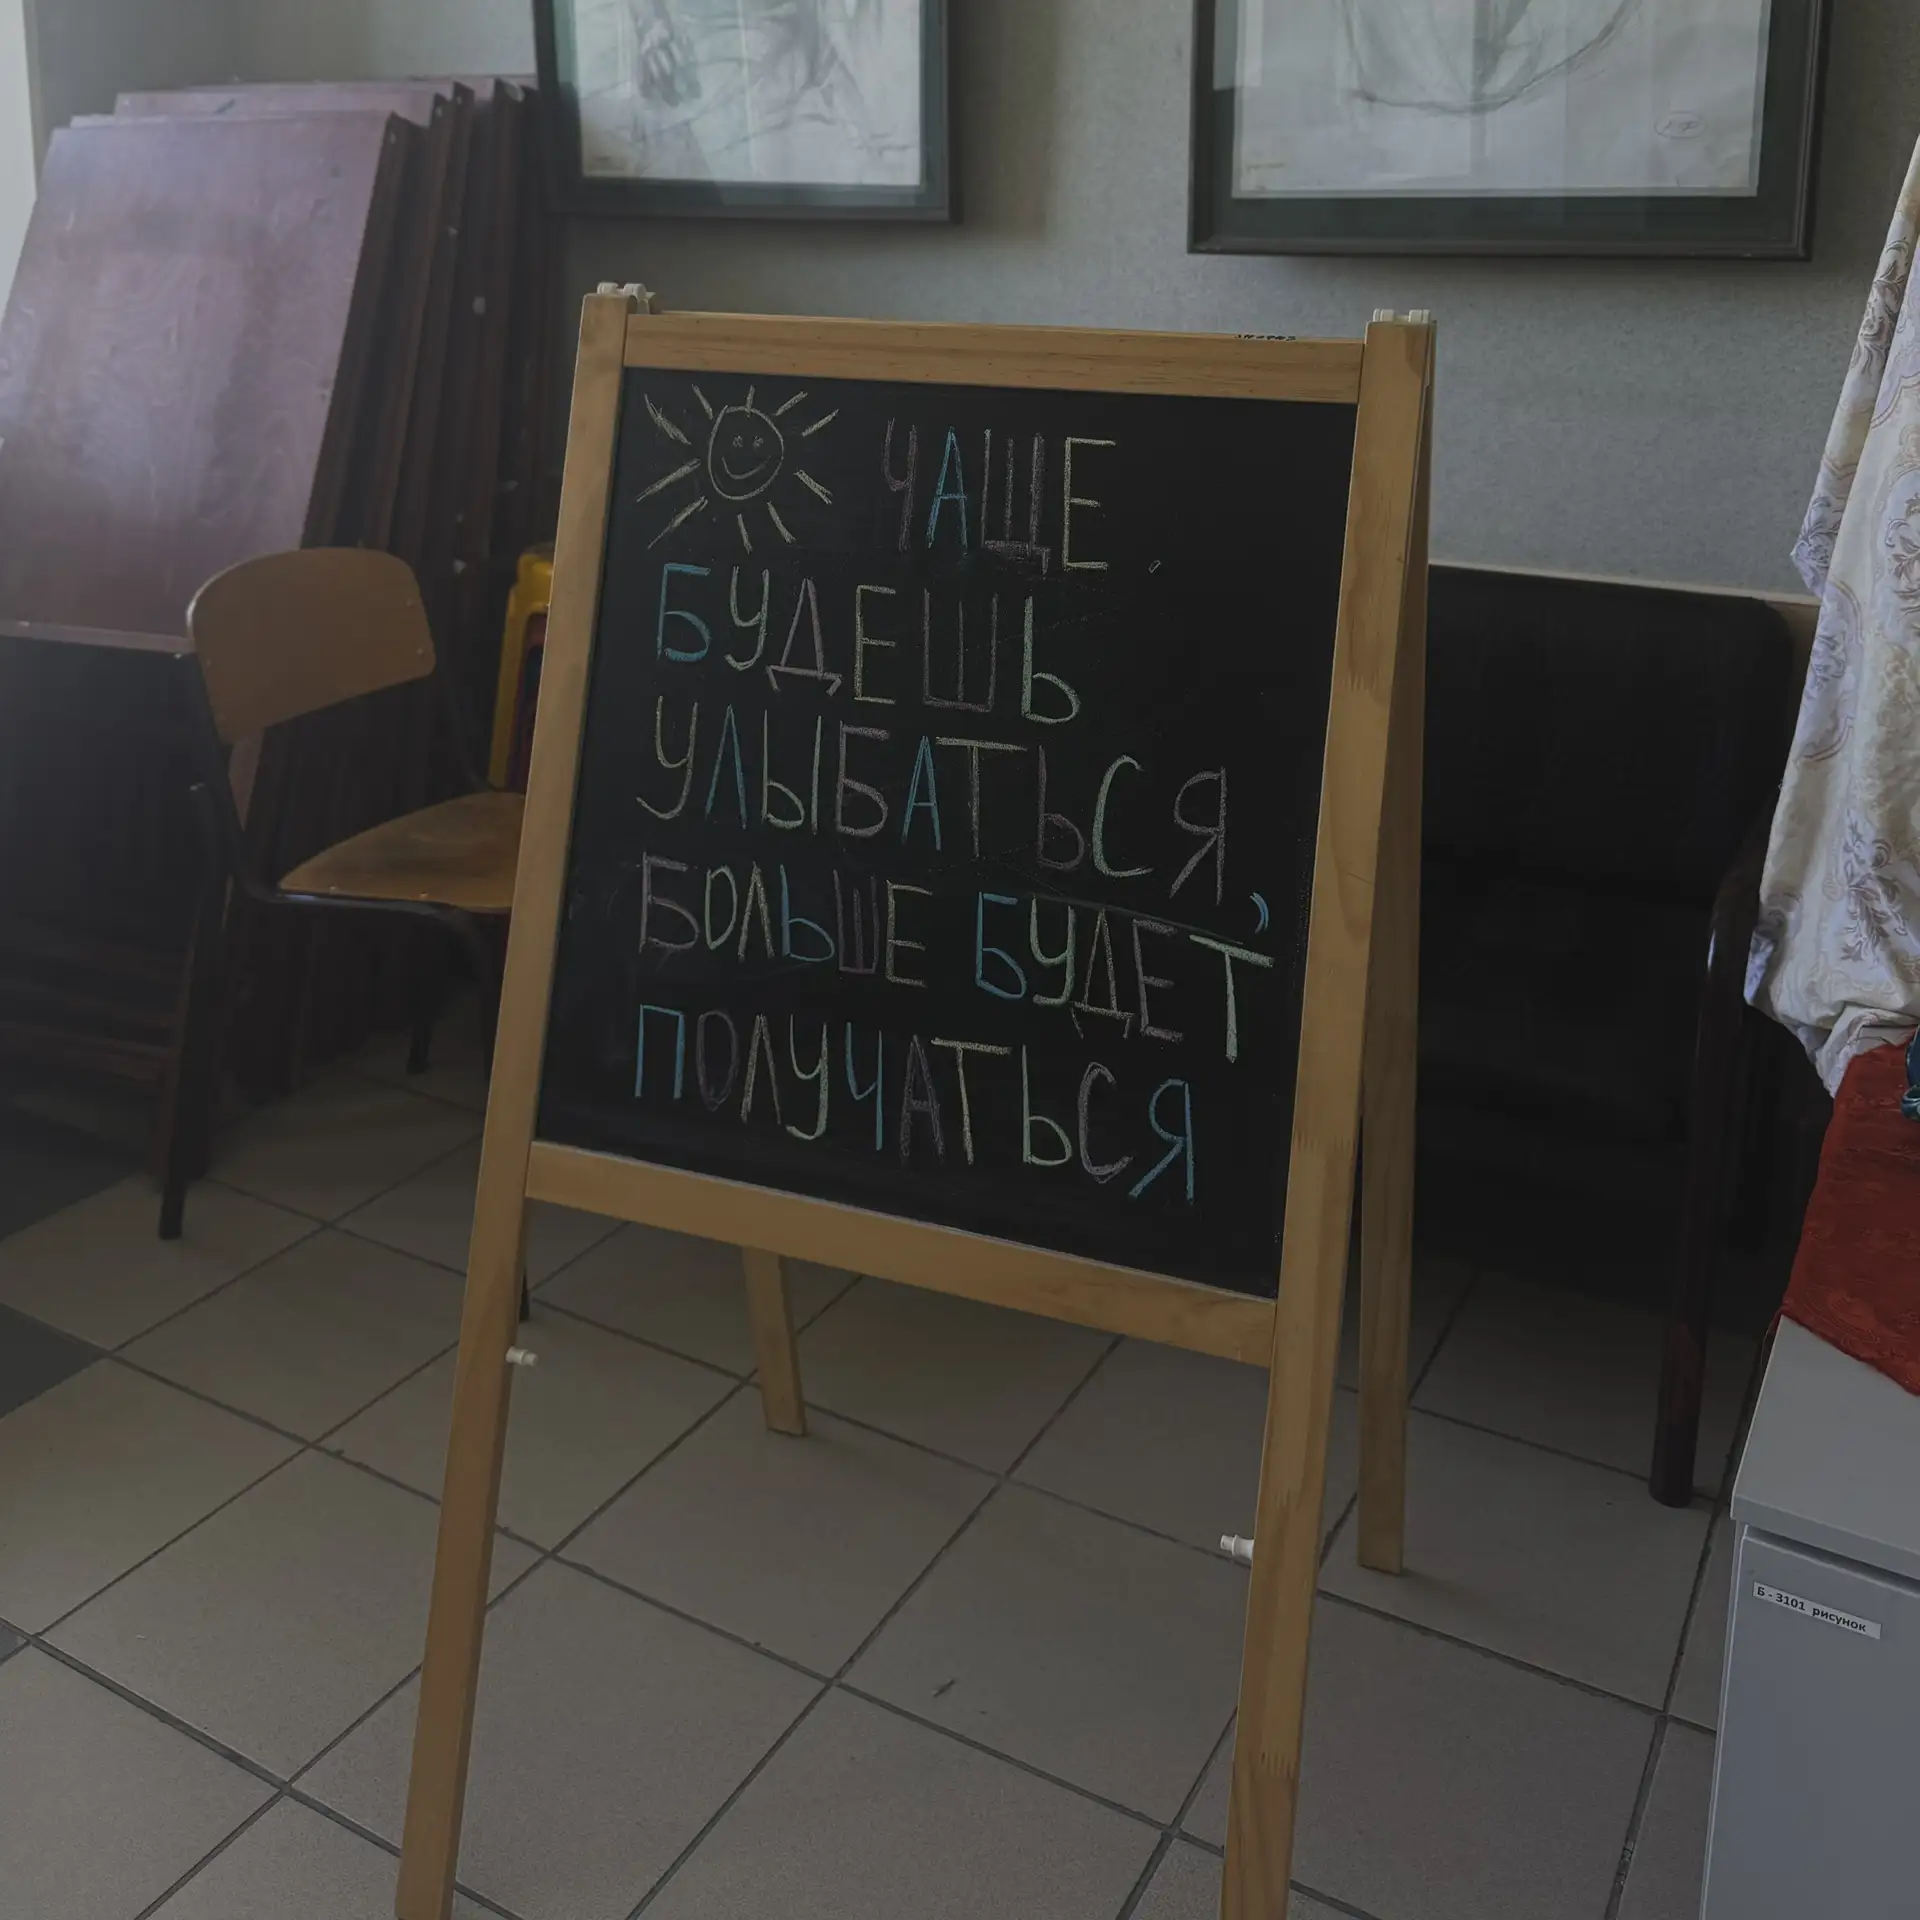 ЧАЩЕ
БУДЕШЬ
УЛЫБАТЬСЯ,
БОЛЬШЕ БУДЕТ
ПОЛУЧАТЬСЯ
Б - 3101 рисунок